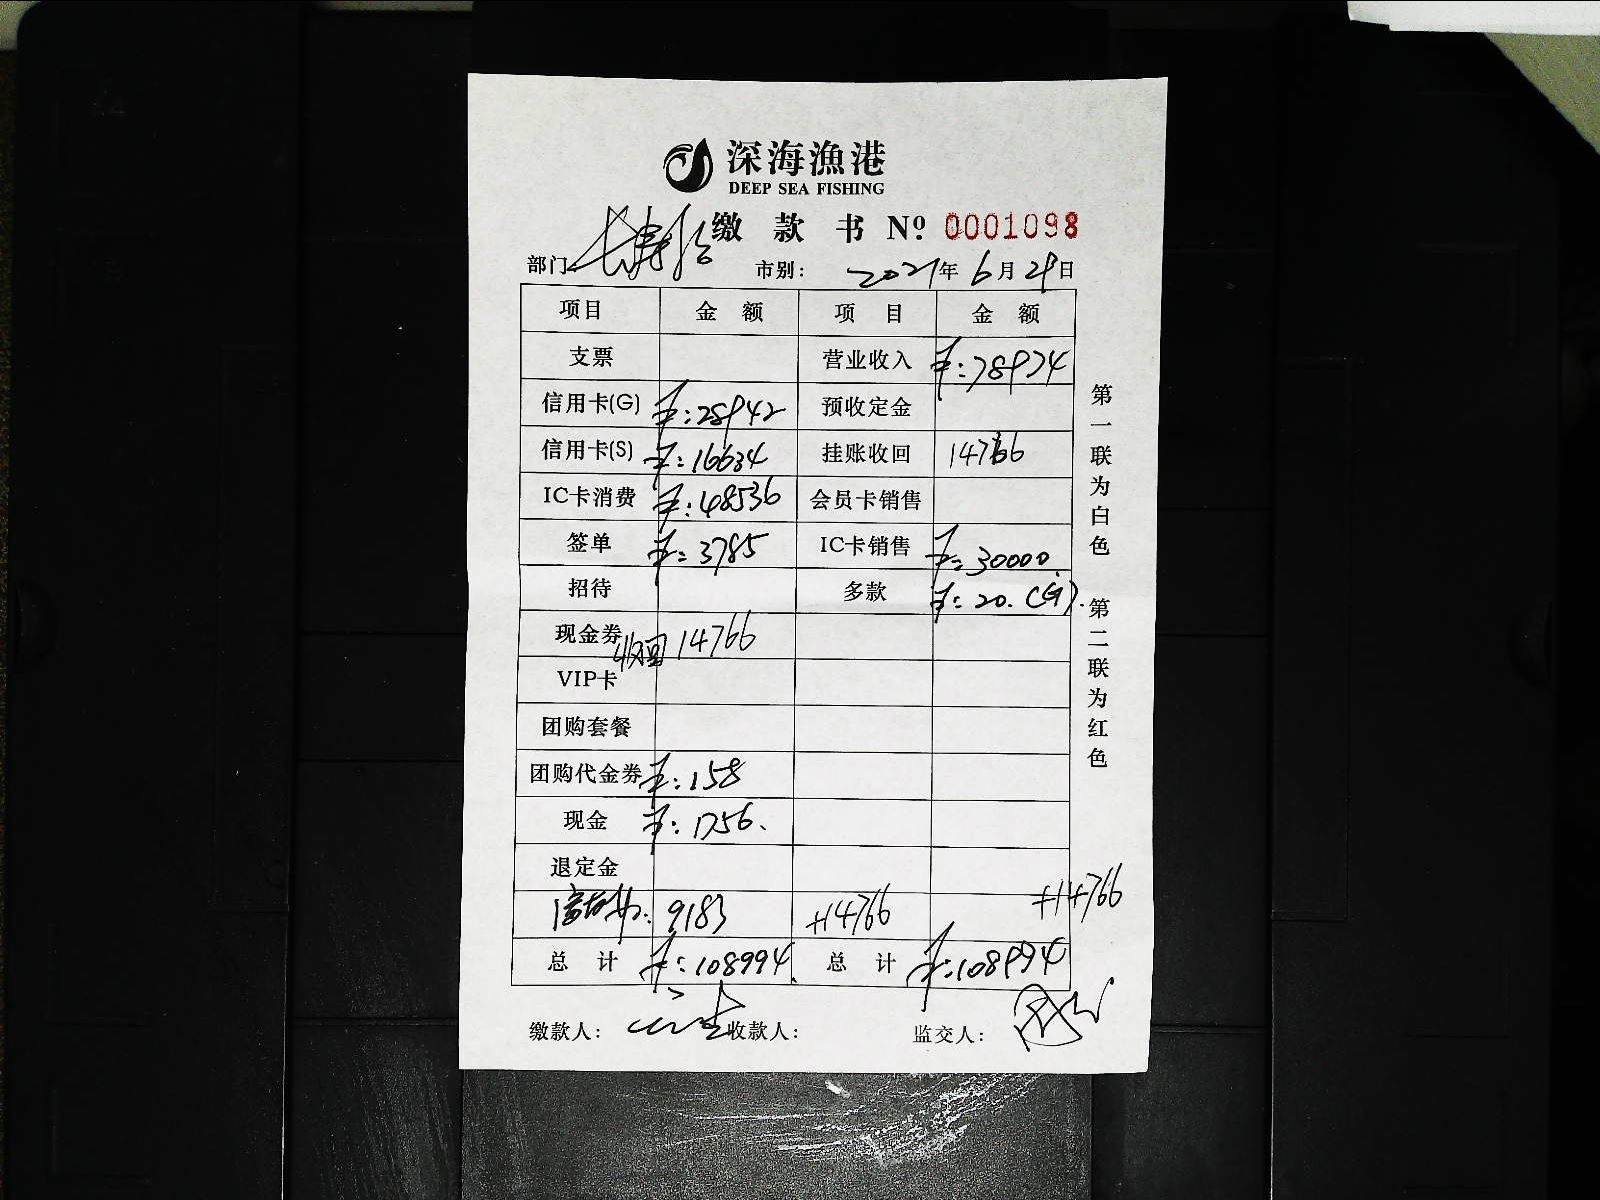 深海漁港
DEEP SEA FISHING
缴款书 № 0001098
部门: 市别: 2021年6月29日
项目 金额 项目 金额
支票 营业收入 ¥:78974
信用卡(G) ¥:28942 预收定金
信用卡(S) ¥:16634 挂账收回 14766
IC卡消费 ¥:48536 会员卡销售
签单 ¥:3785 IC卡销售 ¥:30000.
招待 多款 ¥:20.(G).
现金券 收回 14766
VIP卡
团购套餐
团购代金券 ¥:158
现金 ¥:1756.
退定金
9183 +14766 +14766
总计 ¥:108994. 总计 ¥:108994
缴款人: 收款人: 监交人:
第一联为白色 第二联为红色